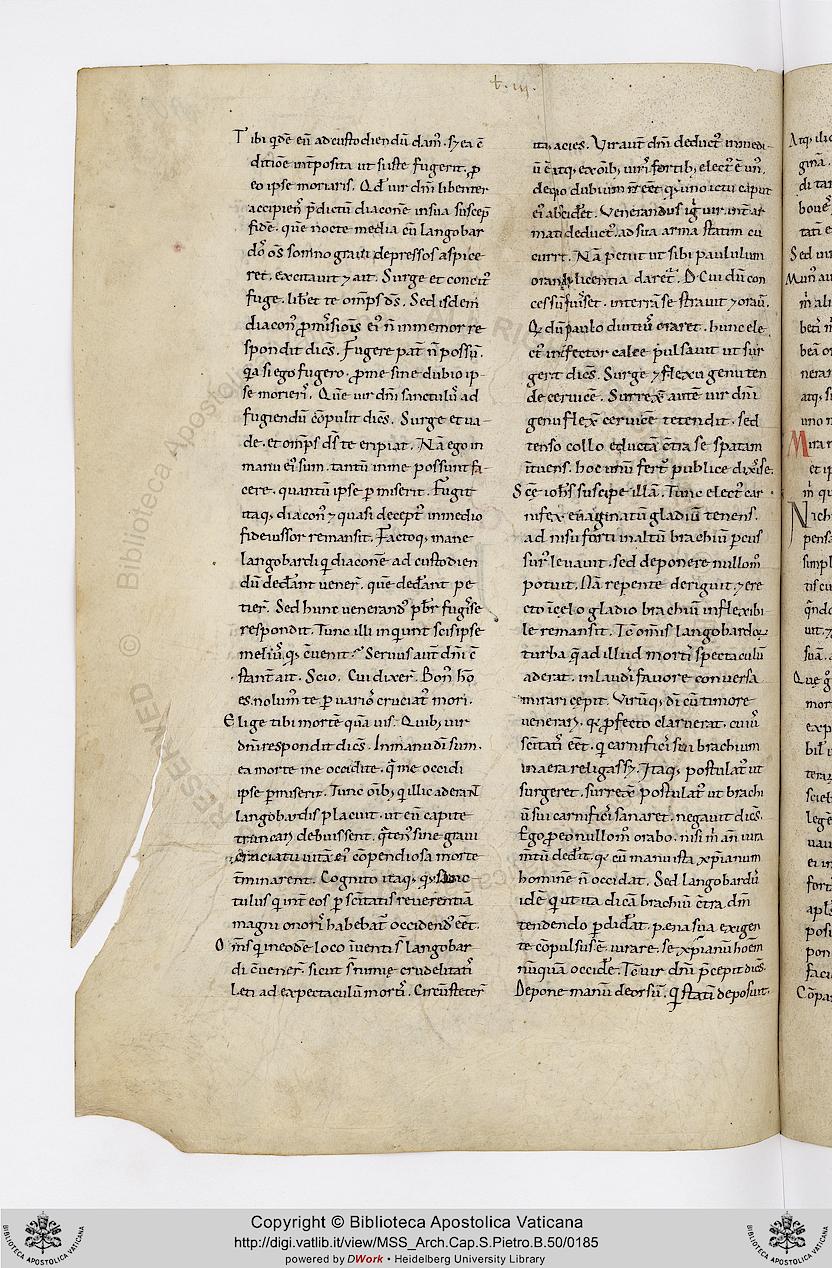 t. iii.
Tibi qdẽ eũ ad custodiendũ dam̃. Sȝ ea ẽ
ditiõe int̃posita ut si iste fugerit. ꝓ
eo ipse moriaris. Qđ uir dñi libenter
accipien̾ p̃dictũ diaconẽ in sua suscep̃
fidẽ. quẽ nocte media cũ langobar
dos̾ oñs somno graui depressos aspice
ret. excitauit ⁊ ait. Surge et concit̾
fuge. lib̾et te omp̃s d̃s. Sed isdem
diacon̾ ꝓmis̾sionis̾ ei̾ ñ inmemor re
spondit dicẽs. Fugere pat̃ ñ possũ.
Qa si ego fugero. ꝓ me sine dubio ip
se morieri̾. Quẽ uir dñi sanctulũ ad
fugiendũ cõpulit dicẽs. Surge et ua
de. et omp̃s d̃s te eripiat. Nã ego in
manu ei̾ sum. tantũ in me possunt fa
cere. quantũ ipse ꝑmiserit. Fugit
itaq; diacon̾ ⁊ quasi decept̾ in medio
fideiussor remansit. Facto q; mane
langobardi q diaconẽ ad custodien
dũ ded̾ant uener̃. quẽ ded̾ant pe
tier̃. Sed hunc uenerand̾ p̃br̃ fugis̾se
respondit. Tunc illi inquiunt scis ipse
meli̾. q; c̃uenit. Seruus aut̃ dñi c̃
stant̾ ait. Scio. Cui dixer̃. Bon̾ hõ
es. nolum̾ te ꝑ uario̾ cruciat̾ mori.
Elige tibi mortẽ quã uis. Quib; uir
dñi respondit dicẽs. In manu d̃i sum.
ea morte me occidite. quã me occidi
ipse ꝑmiserit. Tunc omib; q illic aderant
langobardis placuit. ut eũ capite
truncare̾ debuissent. q̃ten̾ sine graui
cruciatu uitã ei̾ cõpendiosa morte
t̃minarent. Cognito itaq; qđ sanc
tulus q int̃ eos ꝓ sc̃itatis reuerentia
magni onoris̾ habebat̾ occidend̾ eet̃.
Om̃s q in eodẽ loco inuenti s̃ langobar
di c̃uener̃. sicut s̃ nimie crudelitati̾
leti ad expectaculũ morti̾. Circũsteter̃
ita acies. Vir aut̃ dñi deduct̾ in medi
ũ ẽ atq; ex oib; uiri̾ fortib; elect̾ ẽ un̾.
de quo dubium ñ eet̃ q; uno ictu caput
ei̾ abscideret̃. Venerandus ig̾ uir int̃ ar
mati̾ deduct̾. ad sua arma statim cu
currt̃. Nã petiit ut sibi paululum
orandi licentia daret̾. Cui dũ con
cessũ fuis̾set. in terrã se strauit ⁊ orau̾.
Q dũ paulo diuti̾ oraret. hunc ele
ct̾ int̃fector calce pulsauit ut sur
geret dicẽs. Surge ⁊ flexu genu ten
de ceruicẽ. Surrexit̾ autẽ uir dñi
genu flex̾ ceruicẽ tetendit. sed
tenso collo eductã c̃tra se spatam
ituens. hoc unũ fert̾ publice dixis̾se.
Sc̃e ioh̃s suscipe illã. Tunc elect̾ car
nifex euaginatũ gladiũ tenens.
ad nisu forti in altũ brachiũ ꝑcus
sur̾ leuauit. sed deponere nullom̾
potuit. Nã repente deriguit. ⁊ ere
cto i celo gladio brachiũ inflexibi
le remansit. Tc̃ omis̾ langobardoꝝ
turba q̃ ad illud morti̾ spectaculũ
aderat. in laudi̾ fauore conuersa
mirari cepit. Virũq; d̃i cũ timore
uenerari̾. qa ꝓfecto claruerat. cui̾
sc̃itati̾ eet̃. q carnifici̾ sui brachium
in aera religas̾set. Itaq; postulat̾ ut
surgeret. surrexit. postulat̾ ut brachi
ũ sui carnifici̾ sanaret. negauit dicẽs.
Ego ꝓ eo nullom̾ orabo. nisi m̃ añ iura
mtũ dederit. qa cũ manu ista xp̃ianum
hominẽ ñ occidat. Sed langobard̾
idẽ q ut ita dicã brachiũ c̃tra dm̃
tendendo ꝑdid̾at. pena sua exigen
te cõpulsus ẽ iurare. se xp̃ianũ hoẽm
nũquã occid̾e. Tc̃ uir dñi p̃cepit dicẽs.
Depone manũ deorsũ. Qi statĩ deposuit.
Copyright © Biblioteca Apostolica Vaticana
http://digi.vatlib.it/view/MSS_Arch.Cap.S.Pietro.B.50/0185
powered by DWork • Heidelberg University Library